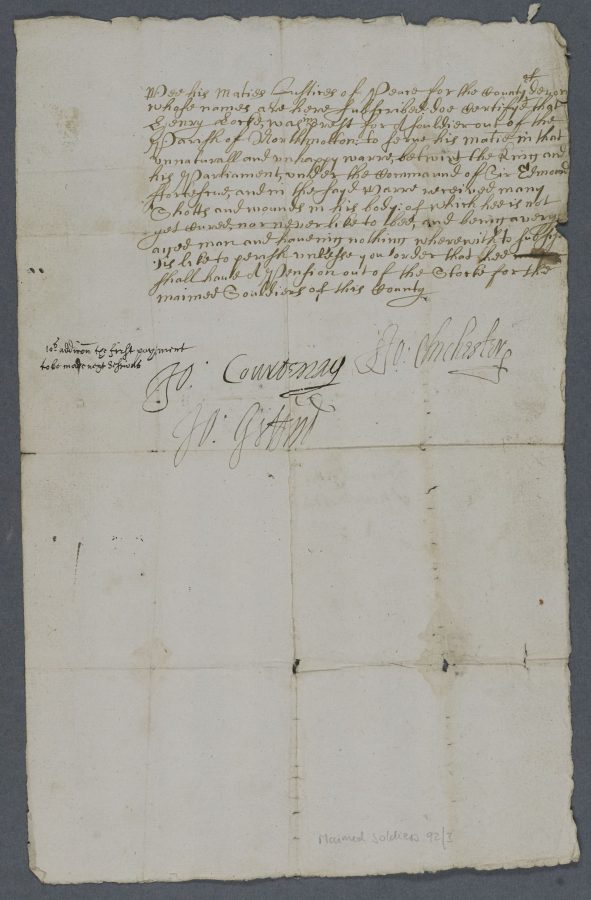 Wee his Maties Justices of Peace for the County of devon
whose names are here subscribed doe Certifye that
Henry Locke, was prest for A Souldier out of the
Parish of Northmolton, to serve his matie in that
unnaturall and unhappy warre, betwixt the King and
his Parliament, under the Command of Sir Edmond
Fortescue, and in the sayd Warre received many
Shotts and wounds in his body: of which hee is not
yet Cured, nor never like to bee, and being a very
aged man and haueing nothing wherewith to subsist
is like to perish unlesse you order that hee
shall haue A Pension out of the Stocke for the
maimed Souldiers of this County
10s the first payment
to be made next
Jo: Courtenay Jo: Chichester
Jo:
Maimed Soldiers 92/3